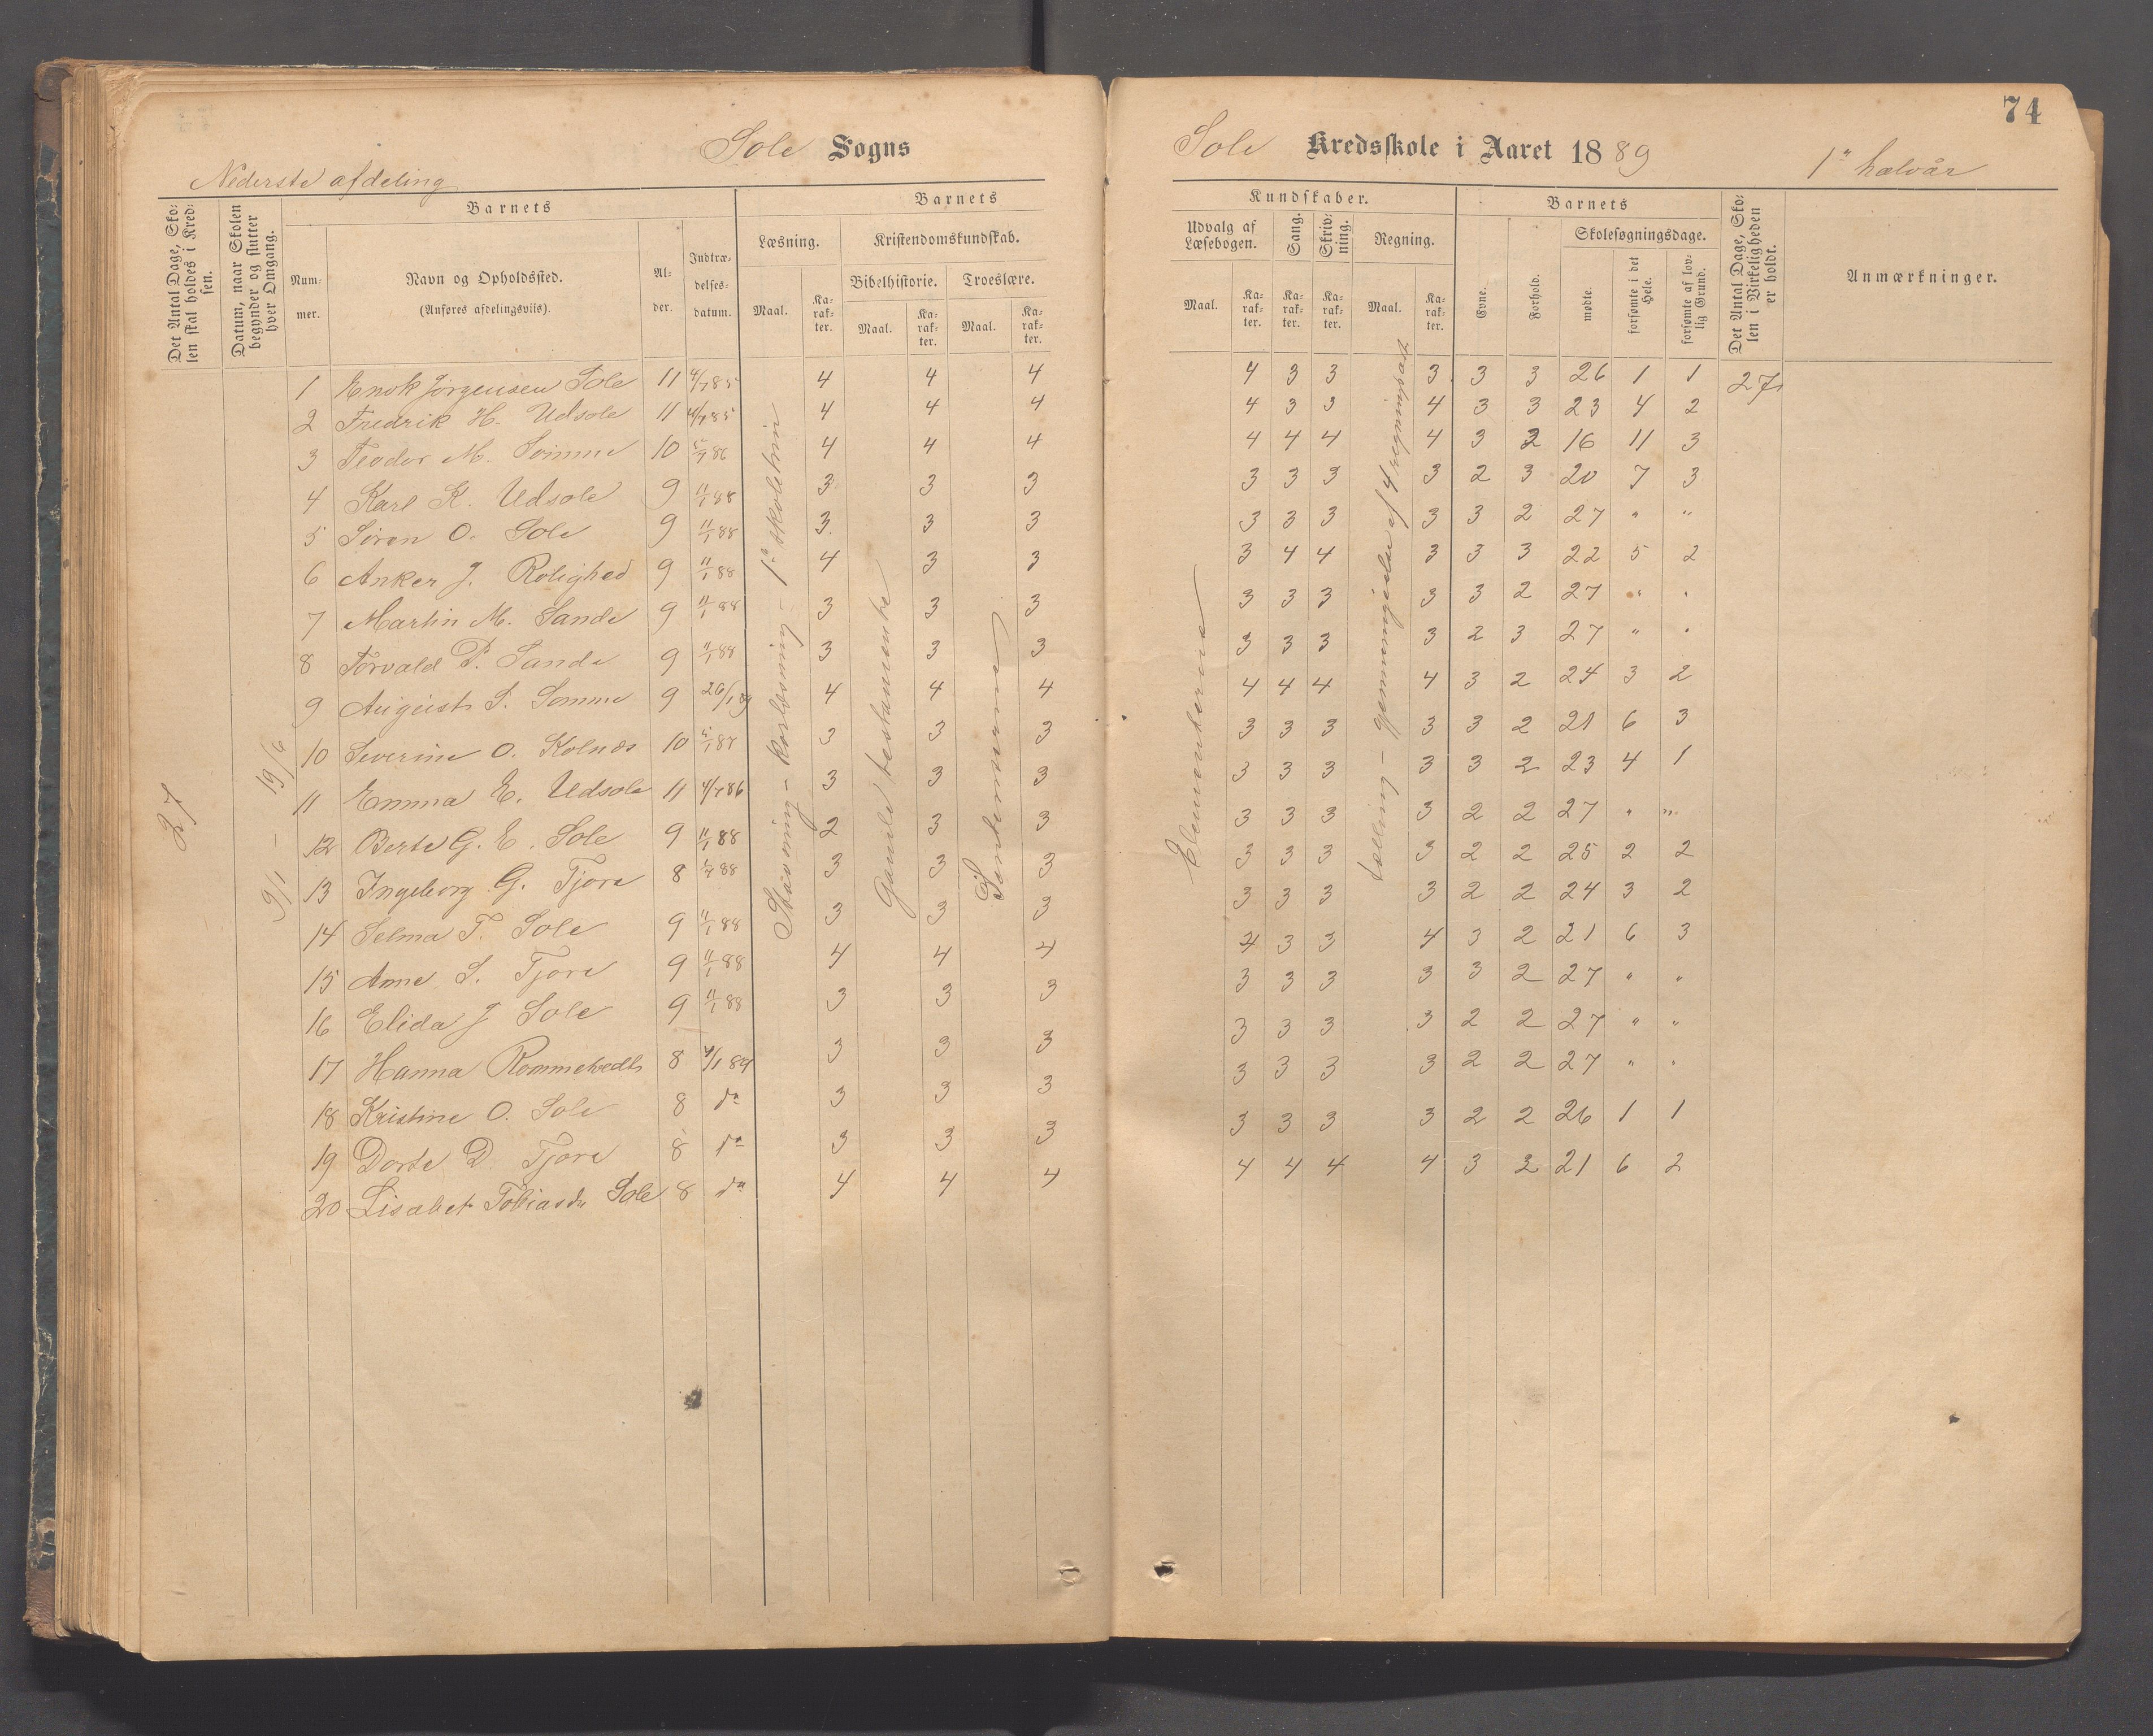 74
Sole Sogns
Sole Kredsskole i Aaret 1889
1ste halvår
Nederste afdeling
Det Antal Dage, Skolen skal holdes i Kredsen.
Datum, naar Skolen begynder og slutter hver Omgang.
Barnets
Nummer.
Navn og Opholdssted.
(Anføres afdelingsviis).
Alder.
Indtrædelsesdatum.
Barnets
Læsning.
Kristendomskundskab.
Bibelhistorie. Troeslære.
Maal. Karakter. Maal. Karakter. Maal. Karakter.
Kundskaber.
Udvalg af Læsebogen.
Sang.
Skrivning.
Regning.
Maal. Karakter. Karakter. Karakter. Maal. Karakter.
Barnets
Evne.
Forhold.
Skolesøgningsdage.
mødte.
forsømte i det Hele.
forsømte af lovlig Grund.
Det Antal Dage, Skolen i Virkeligheden er holdt.
Anmærkninger.
27
9/1 – 19/6
Gamle testamente
Elementerne
1 Enok Jørgensen Sole 11 4/785 4 4 4 4 3 3 3 3 3 26 1 1 27
2 Fredrik H. Udsole 11 4/785 4 4 4 4 3 3 4 3 3 23 4 2
3 Teodor M. Sømme 10 5/786 4 4 4 4 4 4 4 3 2 16 11 3
4 Karl K. Udsole 9 11/188 3 3 3 3 3 3 3 2 3 20 7 3
5 Søren O. Sole 9 11/188 3 3 3 3 3 3 3 3 2 27 " "
6 Anker J. Rolighed 9 11/188 4 3 3 3 4 4 3 3 3 22 5 2
7 Martin M. Sande 9 11/188 3 3 3 3 3 3 3 3 2 27 " "
8 Torvald P. Sande 9 11/188 3 3 3 3 3 3 3 2 3 27 " "
9 August S. Somme 9 26/189 4 4 4 4 4 4 4 3 2 24 3 2
10 Severine O. Kolnæs 10 3 3 3 3 3 3 3 3 2 21 6 3
11 Emma E. Udsole 11 4/786 3 3 3 3 3 3 3 3 2 23 4 1
12 Berte G. E. Sole 9 11/188 2 3 3 3 3 3 3 2 2 27 " "
13 Ingeborg G. Tjora 8 3 3 3 3 3 3 3 2 2 25 2 2
14 Selma T. Sole 9 11/188 3 3 3 3 3 3 3 2 2 24 3 2
15 Anne S. Tjora 9 11/188 4 4 4 4 3 3 4 3 2 21 6 3
16 Elida J Sole 9 11/188 3 3 3 3 3 3 3 3 2 27 " "
17 Hanna Rommetvedt 8 3 3 3 3 3 3 3 2 2 27 " "
18 Kristine O. Sole 8 do 3 3 3 3 3 3 3 2 2 27 " "
19 Dorte D. Tjora 8 do 3 3 3 3 3 3 3 2 2 26 1 1
20 Lisabet Tobiasdr Sole 8 do 4 4 4 4 4 4 4 3 2 21 6 2